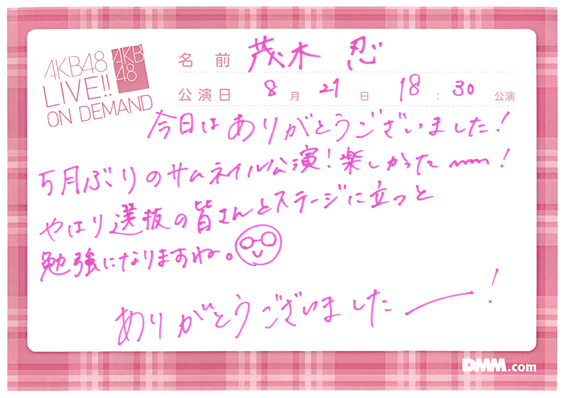 AKB48
LIVE!!
ON DEMAND
AKB
48
名前 茂木 忍
公演日 8月 21日 18:30 公演
今日はありがとうございました!
5月ぶりのサムネイル公演!楽しかった〜〜!
やはり選抜の皆さんとステージに立つと
勉強になりますね。
ありがとうございましたー!
DMM.com